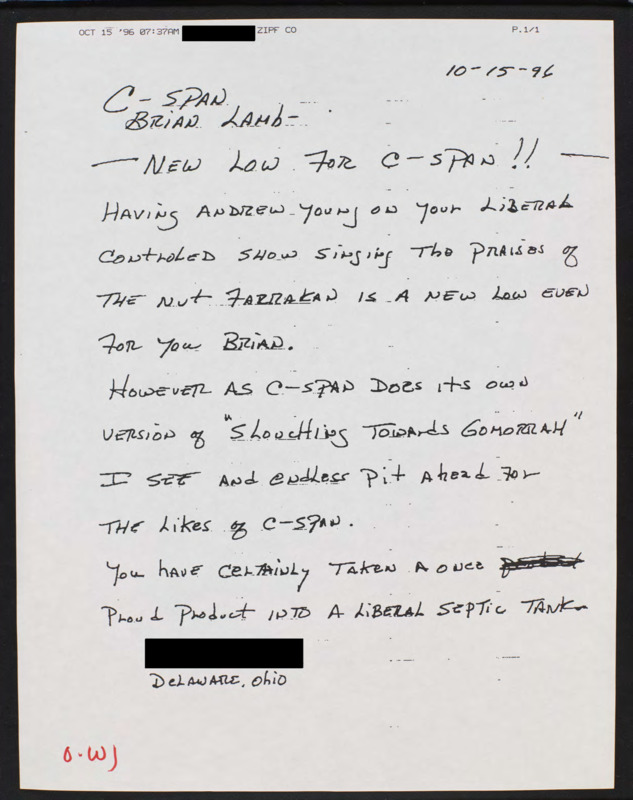 OCT 15 '96 07:37AM ZIPF CO P.1/1
10-15-96
C-SPAN
BRIAN LAMB-
— NEW LOW FOR C-SPAN!! —
HAVING ANDREW YOUNG ON YOUR LIBERAL
CONTROLED SHOW SINGING THE PRAISES OF
THE NUT FARRAKAN IS A NEW LOW EVEN
FOR YOU BRIAN.
HOWEVER AS C-SPAN DOES ITS OWN
VERSION OF "SLOUCHING TOWARDS GOMORRAH"
I SEE AND ENDLESS PIT AHEAD FOR
THE LIKES OF C-SPAN.
YOU HAVE CERTAINLY TAKEN A ONCE
PROUD PRODUCT INTO A LIBERAL SEPTIC TANK
DELAWARE, OHIO